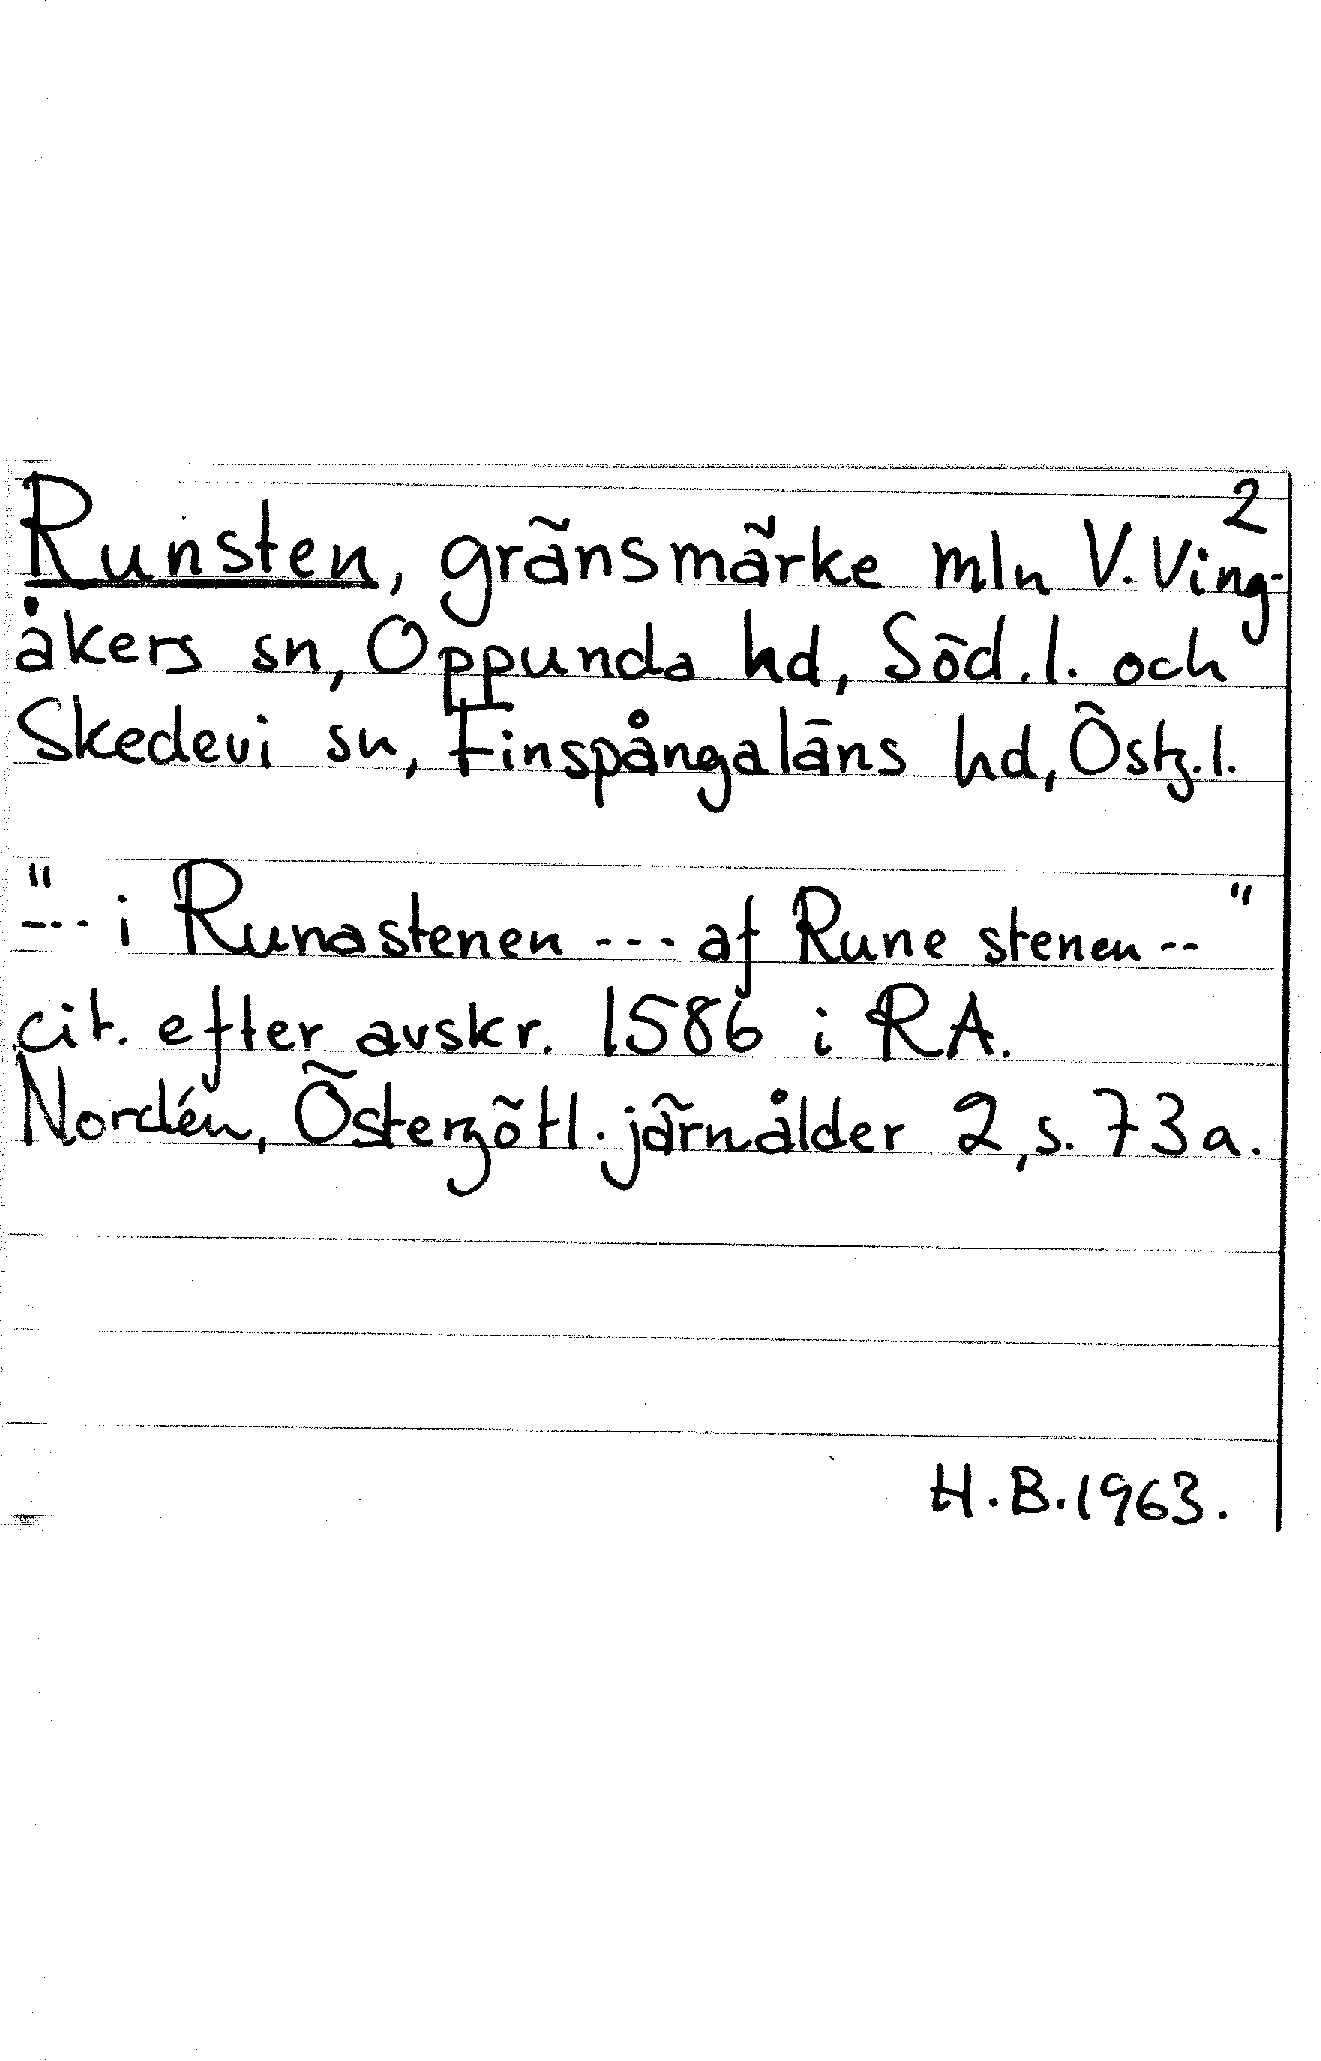 2
Runsten, gränsmärke mln V. Ving-
åkers sn, Oppunda hd, Söd.l. och
Skedevi sn, Finspångaläns hd, Östg.l.
"--- i Runastenen --- af Rune stenen --"
cit. efter avskr. 1586 i RA.
Nordén, Östergötl. järnålder 2, s. 73 a.
H.B. 1963.